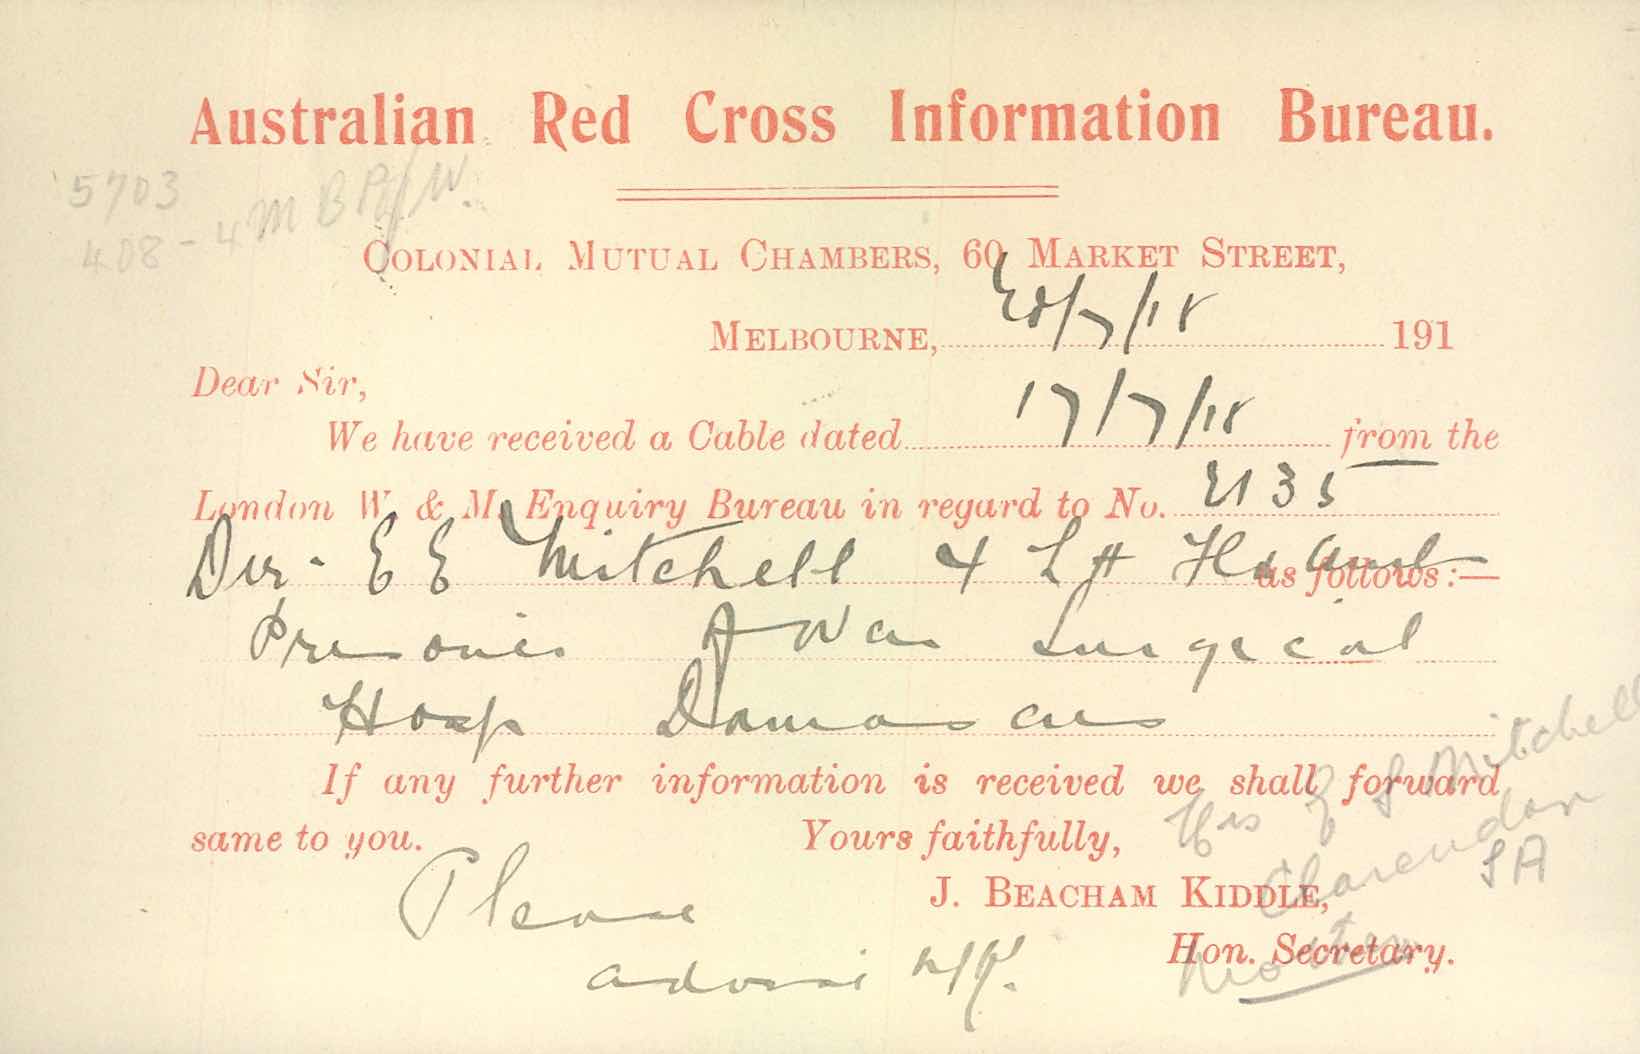 Australian Red Cross Information Bureau.
5703
408 - 4 M B P/W.
COLONIAL MUTUAL CHAMBERS, 60 MARKET STREET,
MELBOURNE, 20/7/18 191
Dear Sir,
We have received a Cable dated 17/7/18 from the
London W. & M. Enquiry Bureau in regard to No. 2135
Dvr. E E Mitchell 4 L H Fd Amb as follows:—
Prisoner of War Surgical
Hosp Damascus
If any further information is received we shall forward
same to you. Yours faithfully,
J. BEACHAM KIDDLE,
Hon. Secretary.
Please
advise n/k.
Mrs Z S Mitchell
Clarendon
SA